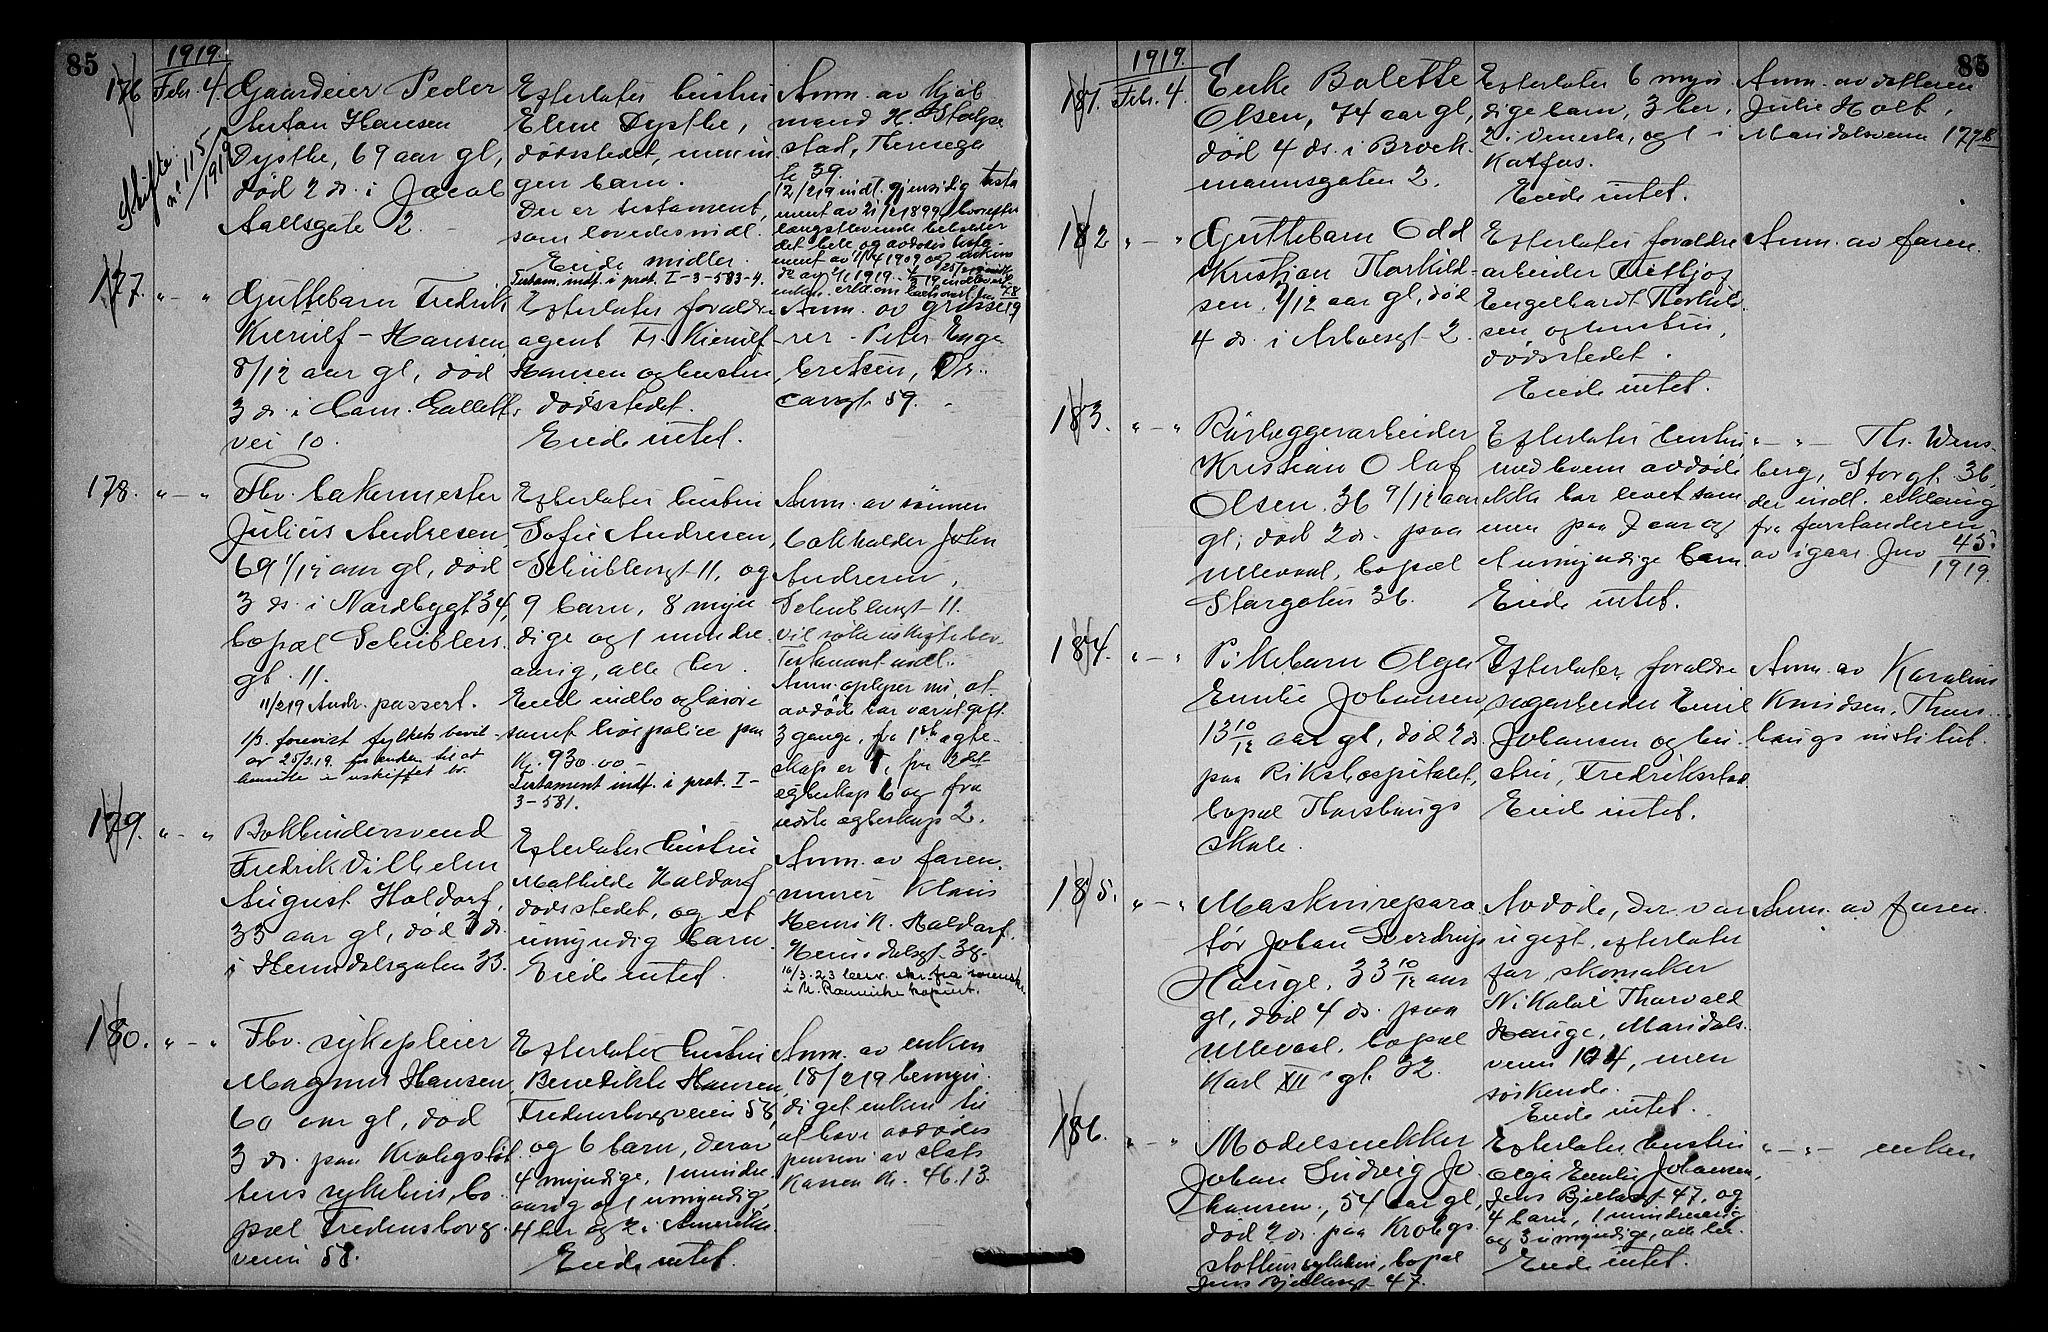 85
1919.
176
Febr. 4.
Skifte
nr. 115/1919
Gaardeier Peder
Anton Hansen
Dysthe, 69 aar gl,
død 2 ds. i Jacob
Aallsgate 2.
Efterlater hustru
Elene Dysthe,
dødsstedet, men in
gen barn.
Der er testament,
som lovedes indl.
Eiede midler.
Testam. indf. i prot. I-3-583-4.
Anm. av kjøb
mand H. Stolpe
stad, Theresega
te 39.
12/2 19 indl. gjensidig testa
ment av 21/2 1899, hvorefter
længstlevende beholder
det hele og avdødes testa-
ment av 1909 og enkens
177.
" — "
Guttebarn Fredrik
Kierulf-Hansen,
8/12 aar gl, død
3 ds. i Cam. Colletts
vei 10.
Efterlater forældre
agent Fr. Kierulf
Hansen og hustru,
dødsstedet.
Eiede intet.
Anm. av grosse
rer Peter Enge
bretsen, Os
carsgt. 59.
178.
" — "
Fhv. bakermester
Julius Andresen,
69 1/12 aar gl, død
3 ds. i Nordbygt 34,
bopæl Schüblers
gt. 11.
11/2 19 Andr. passert.
1/3. forevist fylkets bevil-
av 25/2 19. for enken til at
hensitte i uskiftet bo.
Efterlater hustru
Sofie Andresen,
Schüblersgt 11, og
9 barn, 8 myn
dige og 1 mindre
aarig, alle her.
Eiede indbo og løsøre
samt livspolice paa
Kr. 930.00 —
Testament indf. i prot. I-
3-581.
Anm. av sønnen
bokholder John
Andresen,
Schüblersgt 11.
vil søke uskiftebev
Testament indl.
Anm. oplyser nu, at
avdøde har været gift
3 gange, fra 1ste egte-
skap er 1, fra 2det
egteskap 6 og fra
sidste egteskap 2.
179.
" — "
Bokbindersvend
Fredrik Vilhelm
August Holdorf,
33 aar gl, død 3 ds.
i Heimdalsgaten 33.
Efterlater hustru
Mathilde Haldorf,
dødsstedet, og et
umyndig barn.
Eiede intet.
Anm. av faren,
murer Klaus
Henrik Haldorf,
Heimdalsgt. 38.
180.
" — "
Fhv. sykepleier
Magnus Hansen,
60 aar gl, død
3 ds. paa Krohgsstøt
tens sykehus, bo
pæl Fredensborg
veien 58.
Efterlater hustru
Benedikte Hansen,
Fredensborgveien 58,
og 6 barn, derav
4 myndige, 1 mindre
aarig og 1 umyndig
4 her og 2 i Amerika
Eiede intet.
Anm. av enken
18/2 19 bemyn
diget enken til
at heve avdødes
pension av stats
kassen kr. 46.13.
1919.
85
181.
Febr. 4.
Enke Bolette
Olsen, 74 aar gl,
død 4 ds. i Brock
mannsgaten 2.
Efterlater 6 myn
dige barn, 3 her,
2 i Venesla, og 1 i
Katfos.
Eiede intet.
Anm. av datteren
Julie Holt,
Maridalsveien 177
182
" — "
Guttebarn Odd
Kristian Thorkild-
sen, 7/12 aar gl, død
4 ds. i Arboesgt 2.
Efterlater forældre
arbeider Fritjof
Engelhardt Thorkild
sen og hustru,
dødsstedet.
Eiede intet.
Anm. av faren.
183.
" — "
Rørlæggerarbeider
Kristian Olaf
Olsen. 36 9/12 aar
gl, død 2 ds. paa
Ullevaal, bopæl
Storgaten 36.
Efterlater hustru
med hvem avdøde
ikke har levet sam
men paa 7 aar og
4 umyndige barn
Eiede intet.
" — " — Th. Wens
berg, Storgt. 36,
der indl. erklæring
fra forstanderen
av igaar. Jnr 45/1919.
184.
" — "
Pikebarn Olga
Emilie Johansen,
13 10/12 aar gl, død 2 ds
paa Rikshospitalet,
bopæl Thorshaugs
skole.
Efterlater forældre
sagarbeider Emil
Johansen og hu
stru, Fredrikstad
Eiede intet.
Anm. av Karoline
Knudsen, Thors
haugs institut.
185.
" — "
Maskinrepara
tør Johan Sverdrup
Hauge, 33 10/12 aar
gl, død 4 ds. paa
Ullevaal, bopæl
Karl XII's gt. 32.
Avdøde, der var
ugift, efterlater
far, skomaker
Nikolai Thorvald
Hauge, Maridals
veien 124, men
søskende.
Eiede intet.
Anm. av faren.
186.
" — "
Modelsnekker
Johan Ludvig Jo
hansen, 54 aar gl,
død 2 ds. paa Krohgs
støttens sykehus, bopæl
Jens Bjelkesgt 47.
Efterlater hustru
Olga Emilie Johansen,
Jens Bjelkesgt 47, og
4 barn, 1 mindreaarig
og 3 umyndige, alle her.
Eiede intet.
" — " — enken